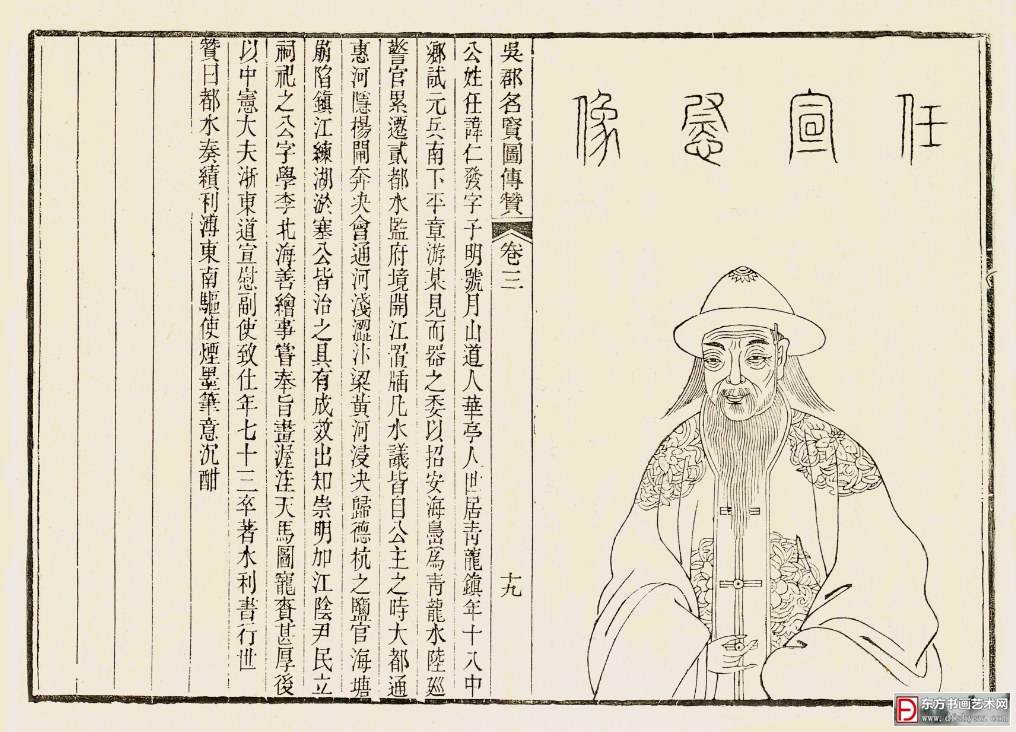 任宣慰像
吳郡名賢圖傳贊 卷三 十九
公姓任諱仁發字子明號月山道人華亭人世居青龍鎮年十八中
鄉試元兵南下平章游某見而器之委以招安海島為青龍水陸廵
警官累遷貳都水監府境開江置牐凡水議皆自公主之時大都通
惠河隱楊閘奔决會通河淺澀汴梁黃河浸决歸德杭之鹽官海塘
崩陷鎮江練湖淤塞公皆治之具有成效出知崇明加江陰尹民立
祠祀之公字學李北海善繪事嘗奉旨畫渥洼天馬圖寵賚甚厚後
以中憲大夫浙東道宣慰副使致仕年七十三卒著水利書行世
贊曰都水奏績利溥東南驅使煙墨筆意沉酣
东方书画艺术网
www.dfshysw.com